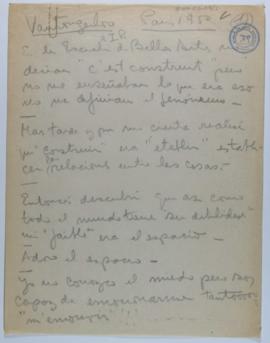 Vantongerloo Paris 1950
En la Escuela de Bellas Artes me
decian "c'est construit" pero
no me enseñaban lo que era eso
No me definian el fenómeno —
Mas tarde y por mi cuenta realicé
que "construir" era "etablir" establ-
cer las relaciones entre las cosas. —
Entonces descubrí que asi como
todo el mundo tiene su debilidad
mi "faible" era el espacio —
Adoro el espacio —
Yo no conozco el miedo pero soy
capaz de emocionarme
"m'émouvoir" !!!